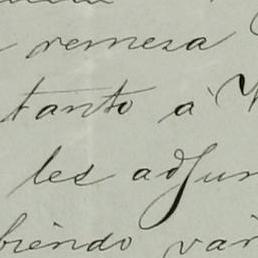 remesa
tanto a
les adjun
biendo var